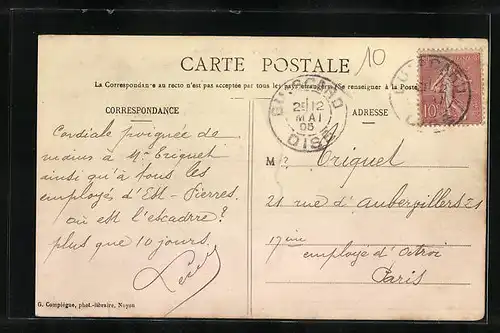 10
CARTE POSTALE
La Correspondance au recto n'est pas acceptée par tous les pays étrangers. (Se renseigner à la Poste)
CORRESPONDANCE
ADRESSE
GUISCARD
25 12
MAI
05
OISE
GUISCARD
10
Cordiale poignée de
mains à Mr Eriquet
ainsi qu'à tous les
employés d'Est-Pierres.
où est l'escadrre?
plus que 10 jours.
M r Eriquet
21 rue d'Aubervilliers 21
17ème
employé d'Octroi
Paris
G. Compiègne, phot.-libraire, Noyon